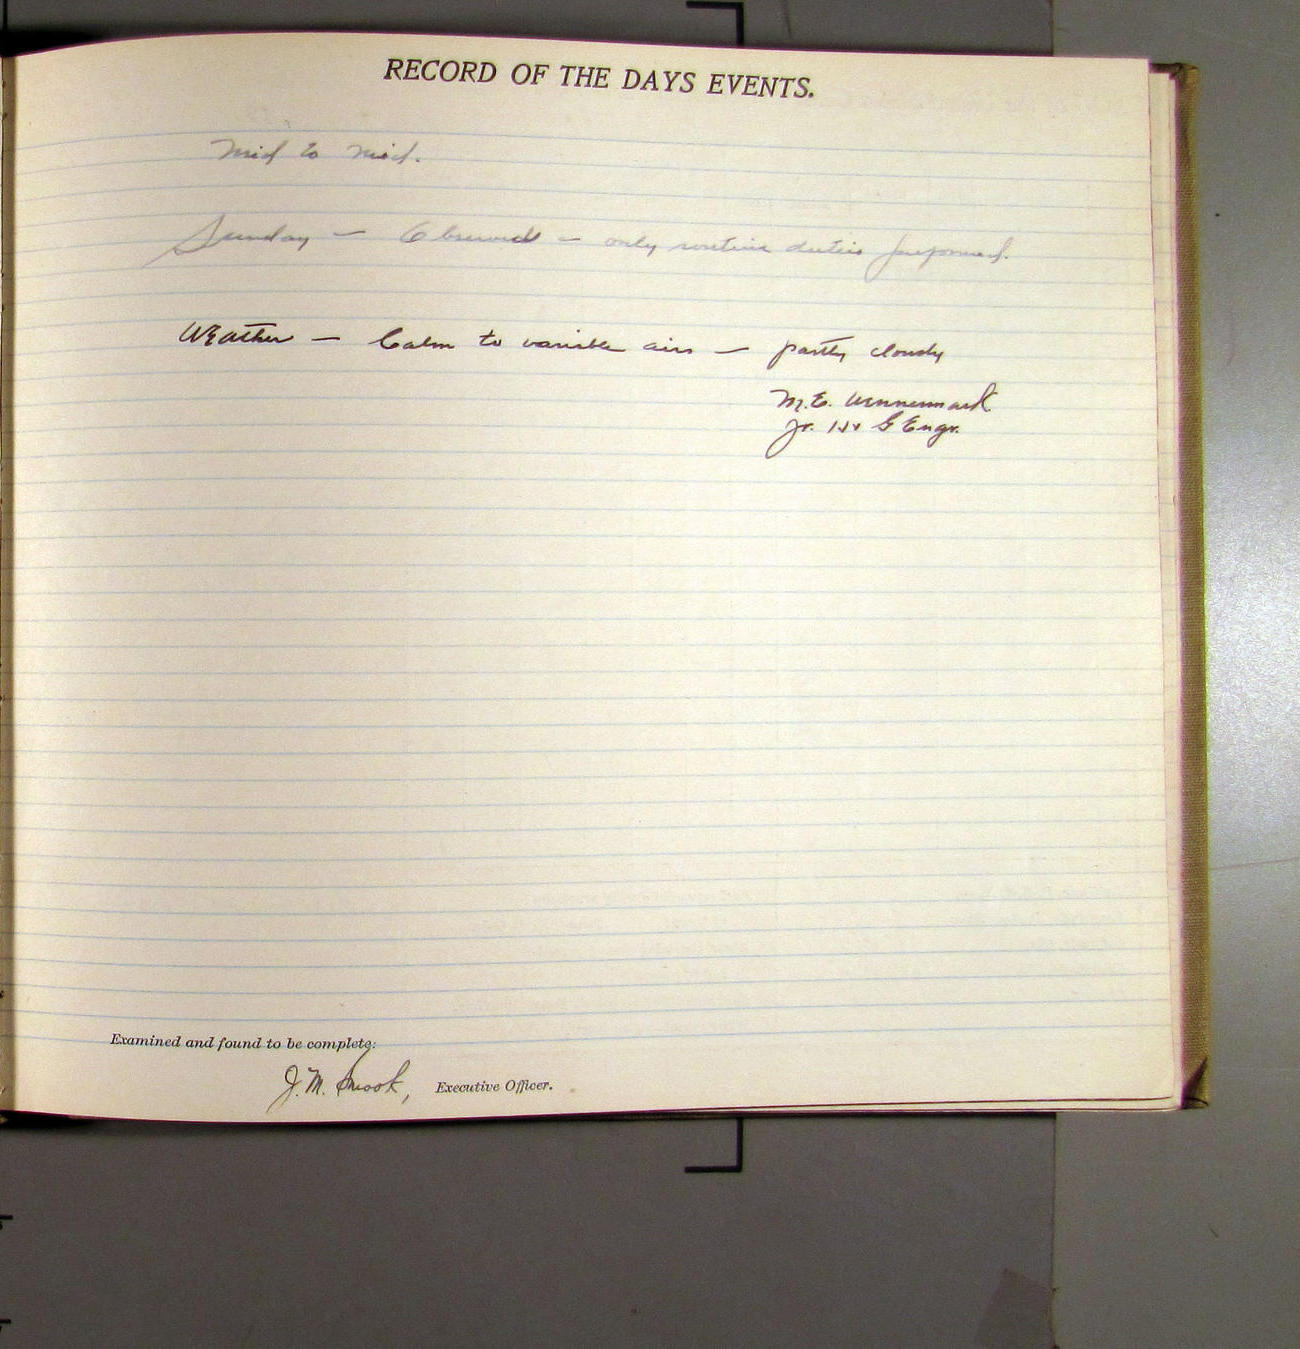 RECORD OF THE DAYS EVENTS.
Mid to Mid.
Sunday — Observed — only routine duties performed.
Weather — Calm to variable airs — partly cloudy
M.E. Wennermark
Jr. Hy & G Engr.
Examined and found to be complete:
J.M. Smook, Executive Officer.